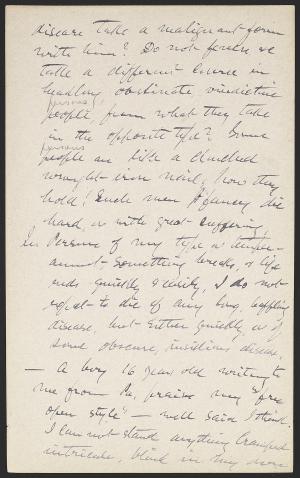 disease take a malignant form
with him? Do not fevers &c
take a different course in
headlong obstinate vindictive
persons
people, from what they take
in the opposite type? Some
persons
people are like a clinched
wrought-iron nail, how they
hold! Such men I fancy die
hard, or with great suffering.
In persons of my type & temper-
ament, something breaks, & life
ends quickly & easily, I do not
expect to die of any long, baffling
disease, but either quickly or of
some obscure, insidious disease.
— A boy 16 year old writing to
me from Pa, praises my "free
open style" — well said I think.
I can not stand anything cramped
intricate, blind in my